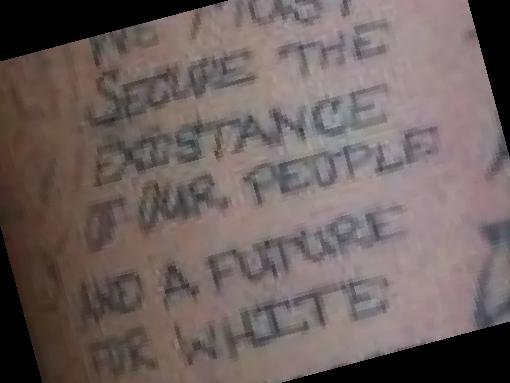 WE MUST
SECURE THE
EXISTANCE
OF OUR PEOPLE
AND A FUTURE
FOR WHITE